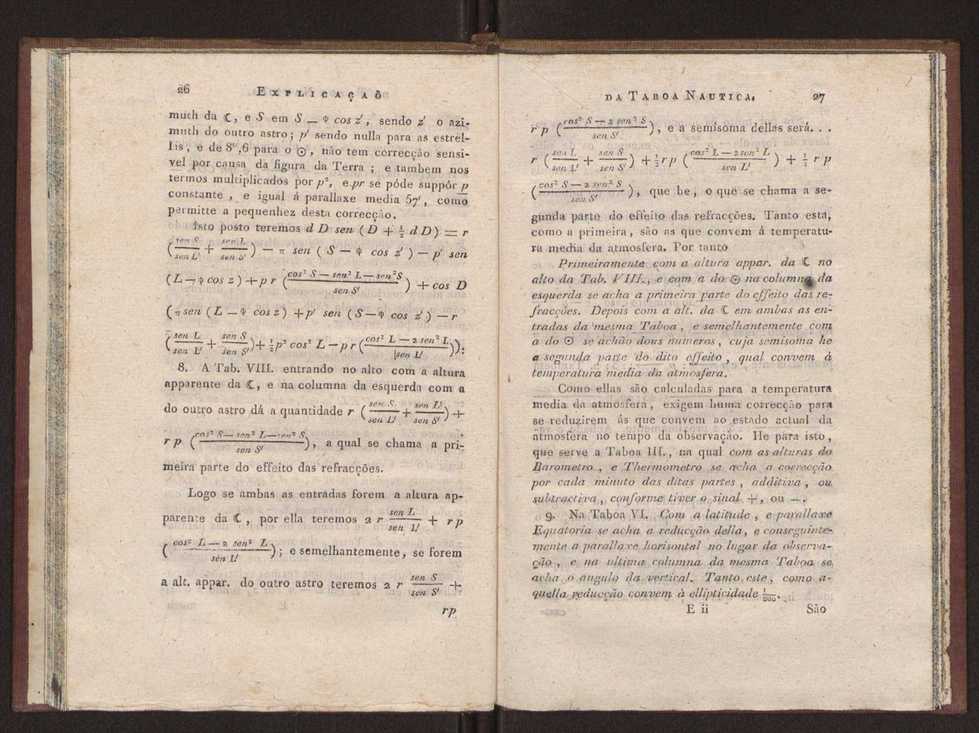 26 EXPLICAÇAÕ
muth da ☾, e S em S — φ cos z', sendo z' o azi-
muth do outro astro; p' sendo nulla para as estrel-
las, e de 8",6 para o ☉, não tem correcção sensi-
vel por causa da figura da Terra; e tambem nos
termos multiplicados por p², e pr se póde suppôr p
constante, e igual á parallaxe media 57', como
permitte a pequenhez desta correcção.
Isto posto teremos d D sen (D + ½ dD) = r
(sen S / sen L' + sen L / sen S') — π sen (S — φ cos z') — p' sen
(L — φ cos z) + p r (cos² S — sen² L — sen² S / sen S') + cos D
(π sen (L — φ cos z) + p' sen (S — φ cos z') — r
(sen L / sen L' + sen S / sen S') + ½ p² cos² L — p r (cos² L — 2 sen² L / sen L')):
8. A Tab. VIII. entrando no alto com a altura
apparente da ☾, e na columna da esquerda com a
do outro astro dá a quantidade r (sen S / sen L' + sen L / sen S') +
r p (cos² S — sen² L — sen² S / sen S'), a qual se chama a pri-
meira parte do effeito das refracções.
Logo se ambas as entradas forem a altura ap-
parente da ☾, por ella teremos 2 r sen L / sen L' + r p
(cos² L — 2 sen² L / sen L'); e semelhantemente, se forem
a alt. appar. do outro astro teremos 2 r sen S / sen S' +
rp
DA TABOA NAUTICA. 27
r p (cos² S — 2 sen² S / sen S'), e a semisoma dellas será. . .
r (sen L / sen L' + sen S / sen S') + ½ r p (cos² L — 2 sen² L / sen L') + ½ r p
(cos² S — 2 sen² S / sen S'), que he, o que se chama a se-
gunda parte do effeito das refracções. Tanto esta,
como a primeira, são as que convem á temperatu-
ra media da atmosfera. Por tanto
Primeiramente com a altura appar. da ☾ no
alto da Tab. VIII., e com a do ☉ na columna da
esquerda se acha a primeira parte do effeito das re-
fracções. Depois com a alt. da ☾ em ambas as en-
tradas da mesma Taboa, e semelhantemente com
a do ☉ se achão dous numeros, cuja semisoma he
a segunda parte do dito effeito, qual convem á
temperatura media da atmosfera.
Como ellas são calculadas para a temperatura
media da atmosfera, exigem huma correcção para
se reduzirem ás que convem ao estado actual da
atmosfera no tempo da observação. He para isto,
que serve a Taboa III., na qual com as alturas do
Barometro, e Thermometro se acha a correcção
por cada minuto das ditas partes, additiva, ou
subtractiva, conforme tiver o sinal +, ou —.
9. Na Taboa VI. Com a latitude, e parallaxe
Equatoria se acha a reducção della, e conseguinte-
mente a parallaxe horisontal no lugar da observa-
ção, e na ultima columna da mesma Taboa se
acha o angulo da vertical. Tanto este, como a-
quella reducção convem á ellipticidade 1/300.
E ii São